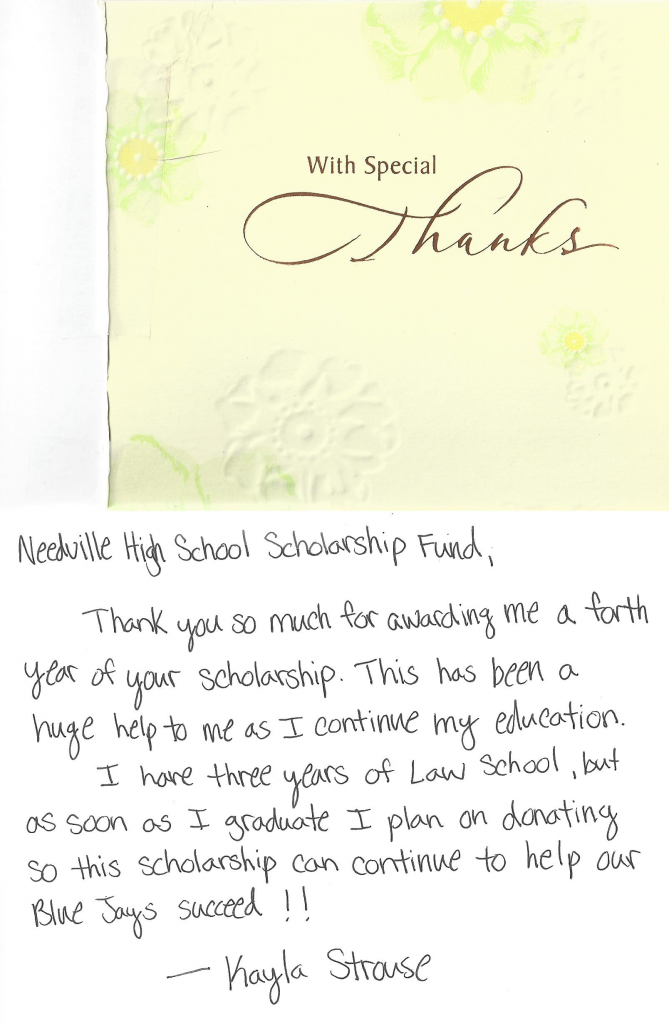 With Special
Thanks
Needville High School Scholarship Fund,
Thank you so much for awarding me a forth
year of your scholarship. This has been a
huge help to me as I continue my education.
I have three years of Law School, but
as soon as I graduate I plan on donating
so this scholarship can continue to help our
Blue Jays succeed!!
— Kayla Strouse